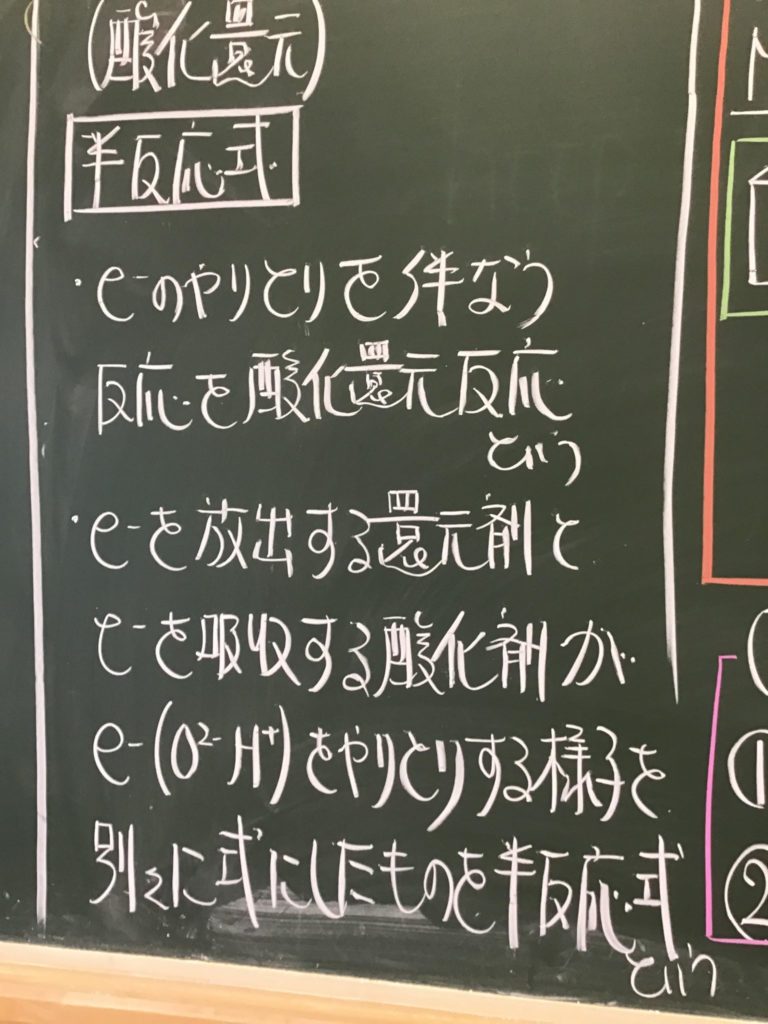 (酸化還元)
半反応式
・e⁻のやりとりを伴なう
反応を酸化還元反応
という
・e⁻を放出する還元剤と
e⁻を吸収する酸化剤が
e⁻(O²⁻ H⁺)をやりとりする様子を
別々に式にしたものを半反応式
という
①
②